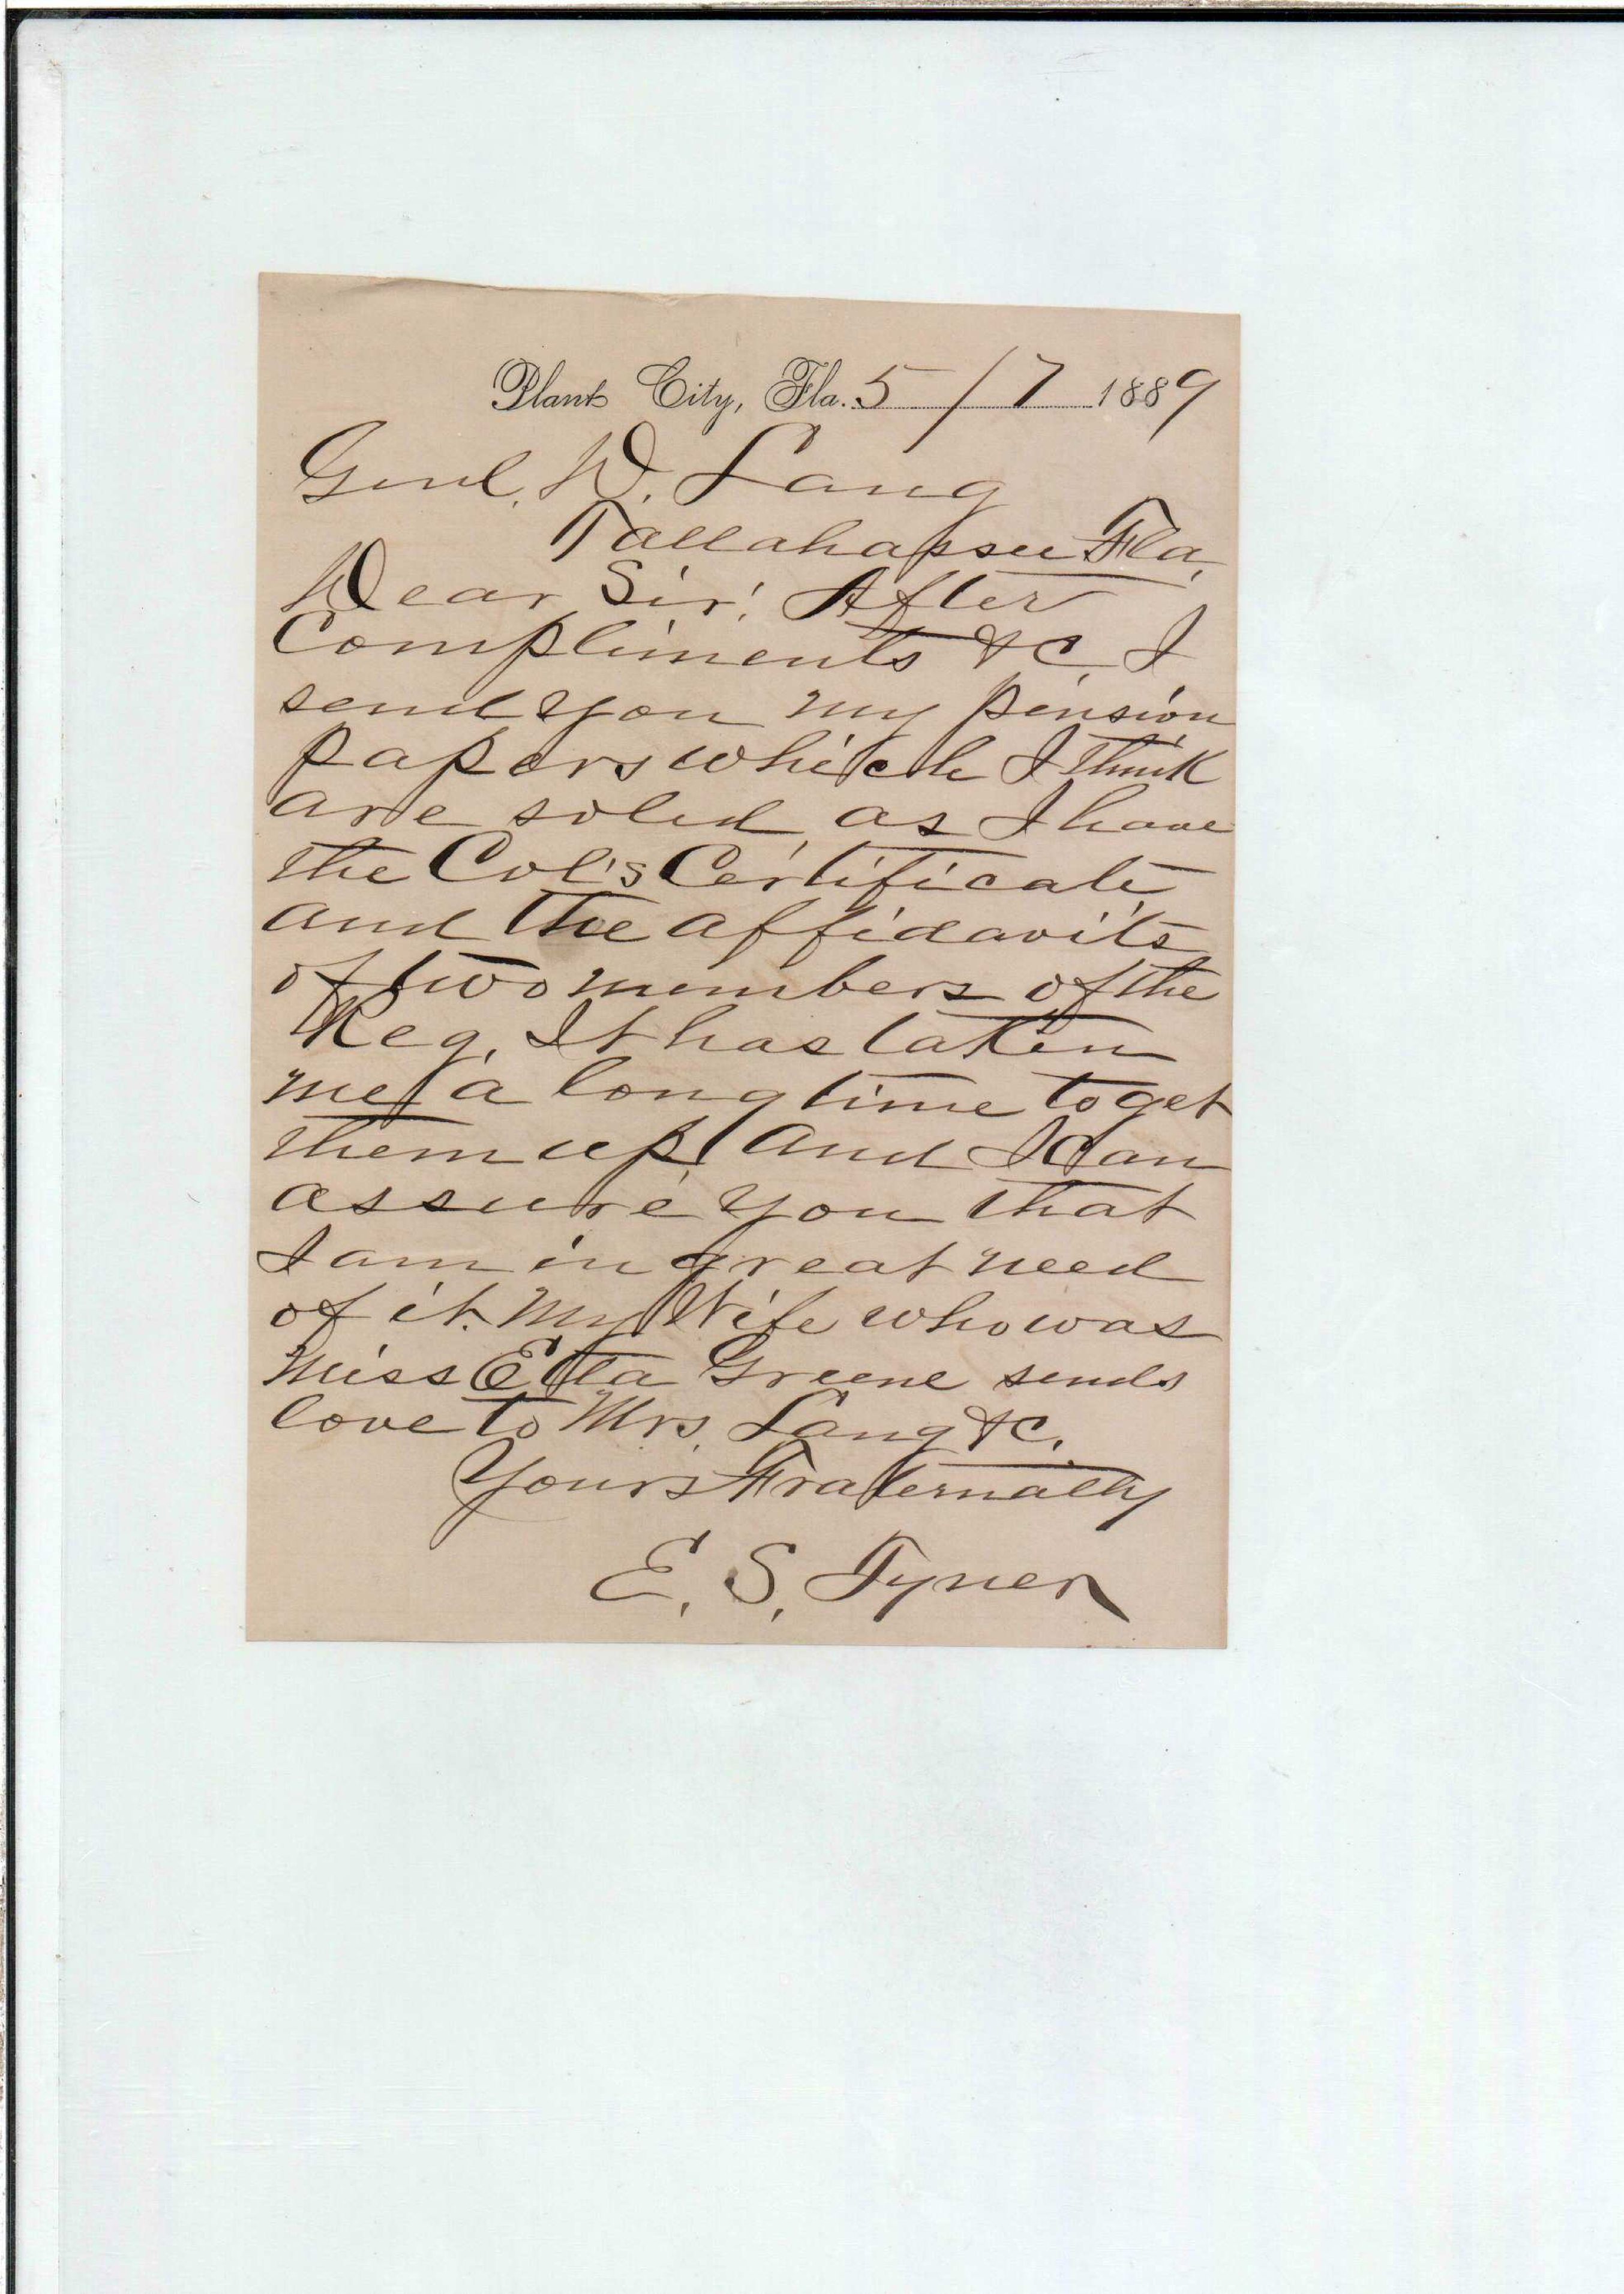 Plant City, Fla. 5/7 1889
Genl. D. Lang
Tallahassee Fla.
Dear Sir! After
Compliments &c, I
send you my pension
papers which I think
are solid, as I have
the Col's Certificate
and the affidavits
of two members of the
Reg. It has taken
me a long time to get
them up, and I can
assure you that
I am in great need
of it. My Wife who was
Miss Etta Greene sends
love to Mrs. Lang &c.
Yours Fraternally
E. S. Tyner